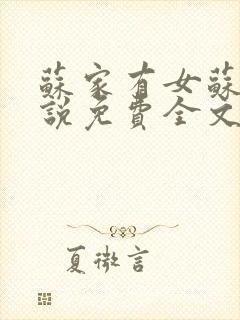 蘇家有女蘇
說免費全文
夏微言